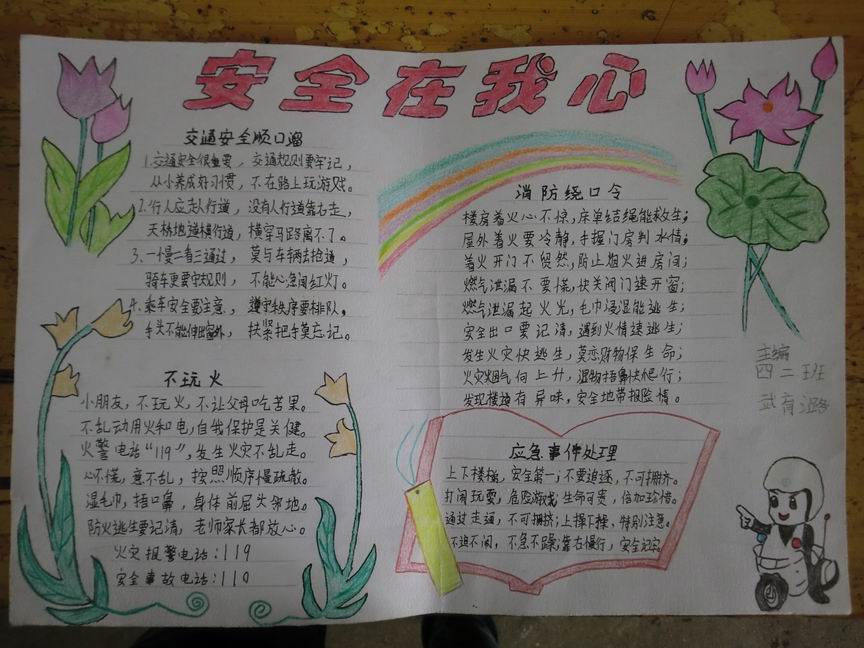 安全在我心
交通安全顺口溜
1.交通安全很重要，交通规则要牢记，
从小养成好习惯，不在路上玩游戏。
2.行人应走人行道，没有人行道靠右走，
天桥地道横行道，横穿马路离不了。
3.一慢二看三通过，莫与车辆去抢道，
骑车更要守规则，不能心急闯红灯。
4.乘车安全要注意，遵守秩序要排队，
手头不能伸出窗外，扶紧把手莫忘记。
不玩火
小朋友，不玩火，不让父母吃苦果。
不乱动用火和电，自我保护是关健。
火警电话“119”，发生火灾不乱走。
心不慌，意不乱，按照顺序慢疏散。
湿毛巾，捂口鼻，身体前屈头邻地。
防火逃生要记清，老师家长都放心。
火灾报警电话：119
安全事故电话：110
消防绕口令
楼房着火心不惊，床单结绳能救生；
屋外着火要冷静，手握门房判水情；
着火开门不贸然，防止烟火进房间；
燃气泄漏不要慌，快关阀门速开窗；
燃气泄漏起火光，毛巾浸湿能逃生；
安全出口要记清，遇到火情速逃生；
发生火灾快逃生，莫恋财物保生命；
火灾烟气向上升，湿物捂鼻快爬行；
发现楼道有异味，安全地带报险情。
应急事件处理
上下楼梯，安全第一；不要追逐，不可拥挤。
打闹玩耍，危险游戏；生命可贵，倍加珍惜。
通过走道，不可拥挤；上操下操，特别注意。
不追不闹，不急不躁；靠右慢行，安全记牢。
主编
四二班
武育璐